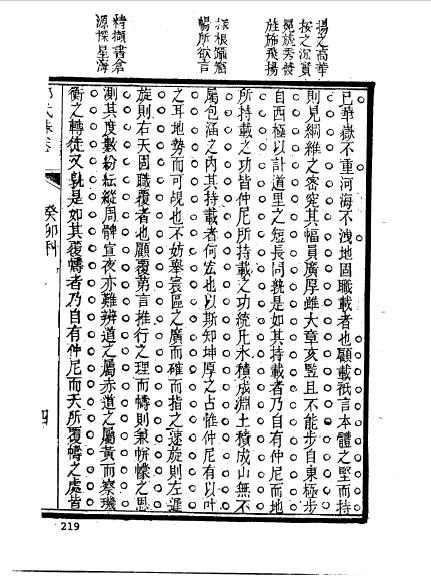 揚之高華
按之沉實
晃旒秀發
旌旆飛揚
深根蹯
暢所欲言
精擷書倉
源探星海
已華嶽不重河海不洩地固職載者也顧載祇言本體之堅而持
則見綱維之密究其幅員廣厚雖大章亥豎且不能步自東極步
自西極以計道里之短長同孰是如其持載者乃自有仲尼而地
所持載之功皆仲尼所持載之功統凡水積成淵土積成山無不
屬包涵之內其持載者何宏也以斯知坤厚之占惟仲尼有以叶
之耳地勢而可覘也不妨舉寰區之廣而確而指之速旋則左遲
旋則右天固職覆者也顧覆第言推行之理而幬則兼帡幪之思
測其度數紛紜縱周髀宣夜亦難辨道之屬赤道之屬黃而察璣
衡之轉徒又孰是如其覆幬者乃自有仲尼而天所覆幬之處皆
癸卯科
四
219